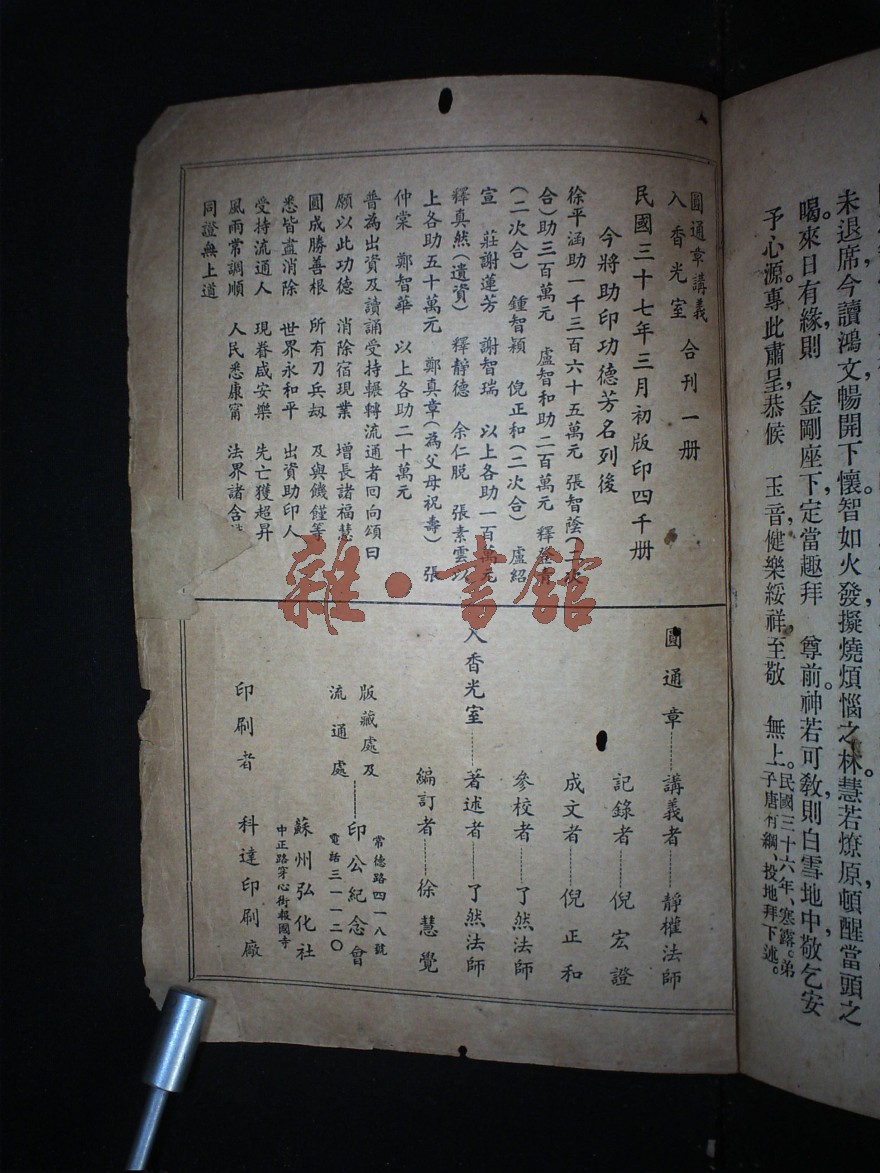 未退席今讀鴻文暢開下懷。智如火發擬燒煩惱之林慧若燎原頓醒當頭之
喝。來日有緣則　金剛座下定當趣拜　尊前。神若可教則白雪地中敬乞安
予心源。專此肅呈恭候　玉音健樂綏祥至敬　無上。民國三十六年、寒露。弟
子唐有綱、投地拜下述。
圓通章講義
入香光室　合刊一册
民國三十七年三月初版印四千册
今將助印功德芳名列後
徐平涵助一千三百六十五萬元　張智蔭(二次
合)助三百萬元　盧智和助二百萬元　釋
(二次合)　鍾智穎　倪正和(二次合)　盧紹
宣　莊謝蓮芳　謝智瑞　以上各助一百萬元
釋真然(遺資)　釋靜德　余仁脫　張素雲以
上各助五十萬元　鄭真章(為父母祝壽)　張
仲棠　鄭智華　以上各助二十萬元
普為出資及讀誦受持輾轉流通者回向頌曰
願以此功德　消除宿現業　增長諸福慧
圓成勝善根　所有刀兵劫　及與饑饉等
悉皆盡消除　世界永和平　出資助印人
受持流通人　現眷咸安樂　先亡獲超昇
風雨常調順　人民悉康甯　法界諸含
同證無上道
圓通章……講義者……靜權法師
記錄者……倪宏證
成文者……倪正和
參校者……了然法師
入香光室……著述者……了然法師
編訂者……徐慧覺
版藏處及
流通處
印公紀念會
常德路四一八號
電話三一一二〇
蘇州弘化社
中正路穿心街報國寺
印刷者　科達印刷廠
雜·書館